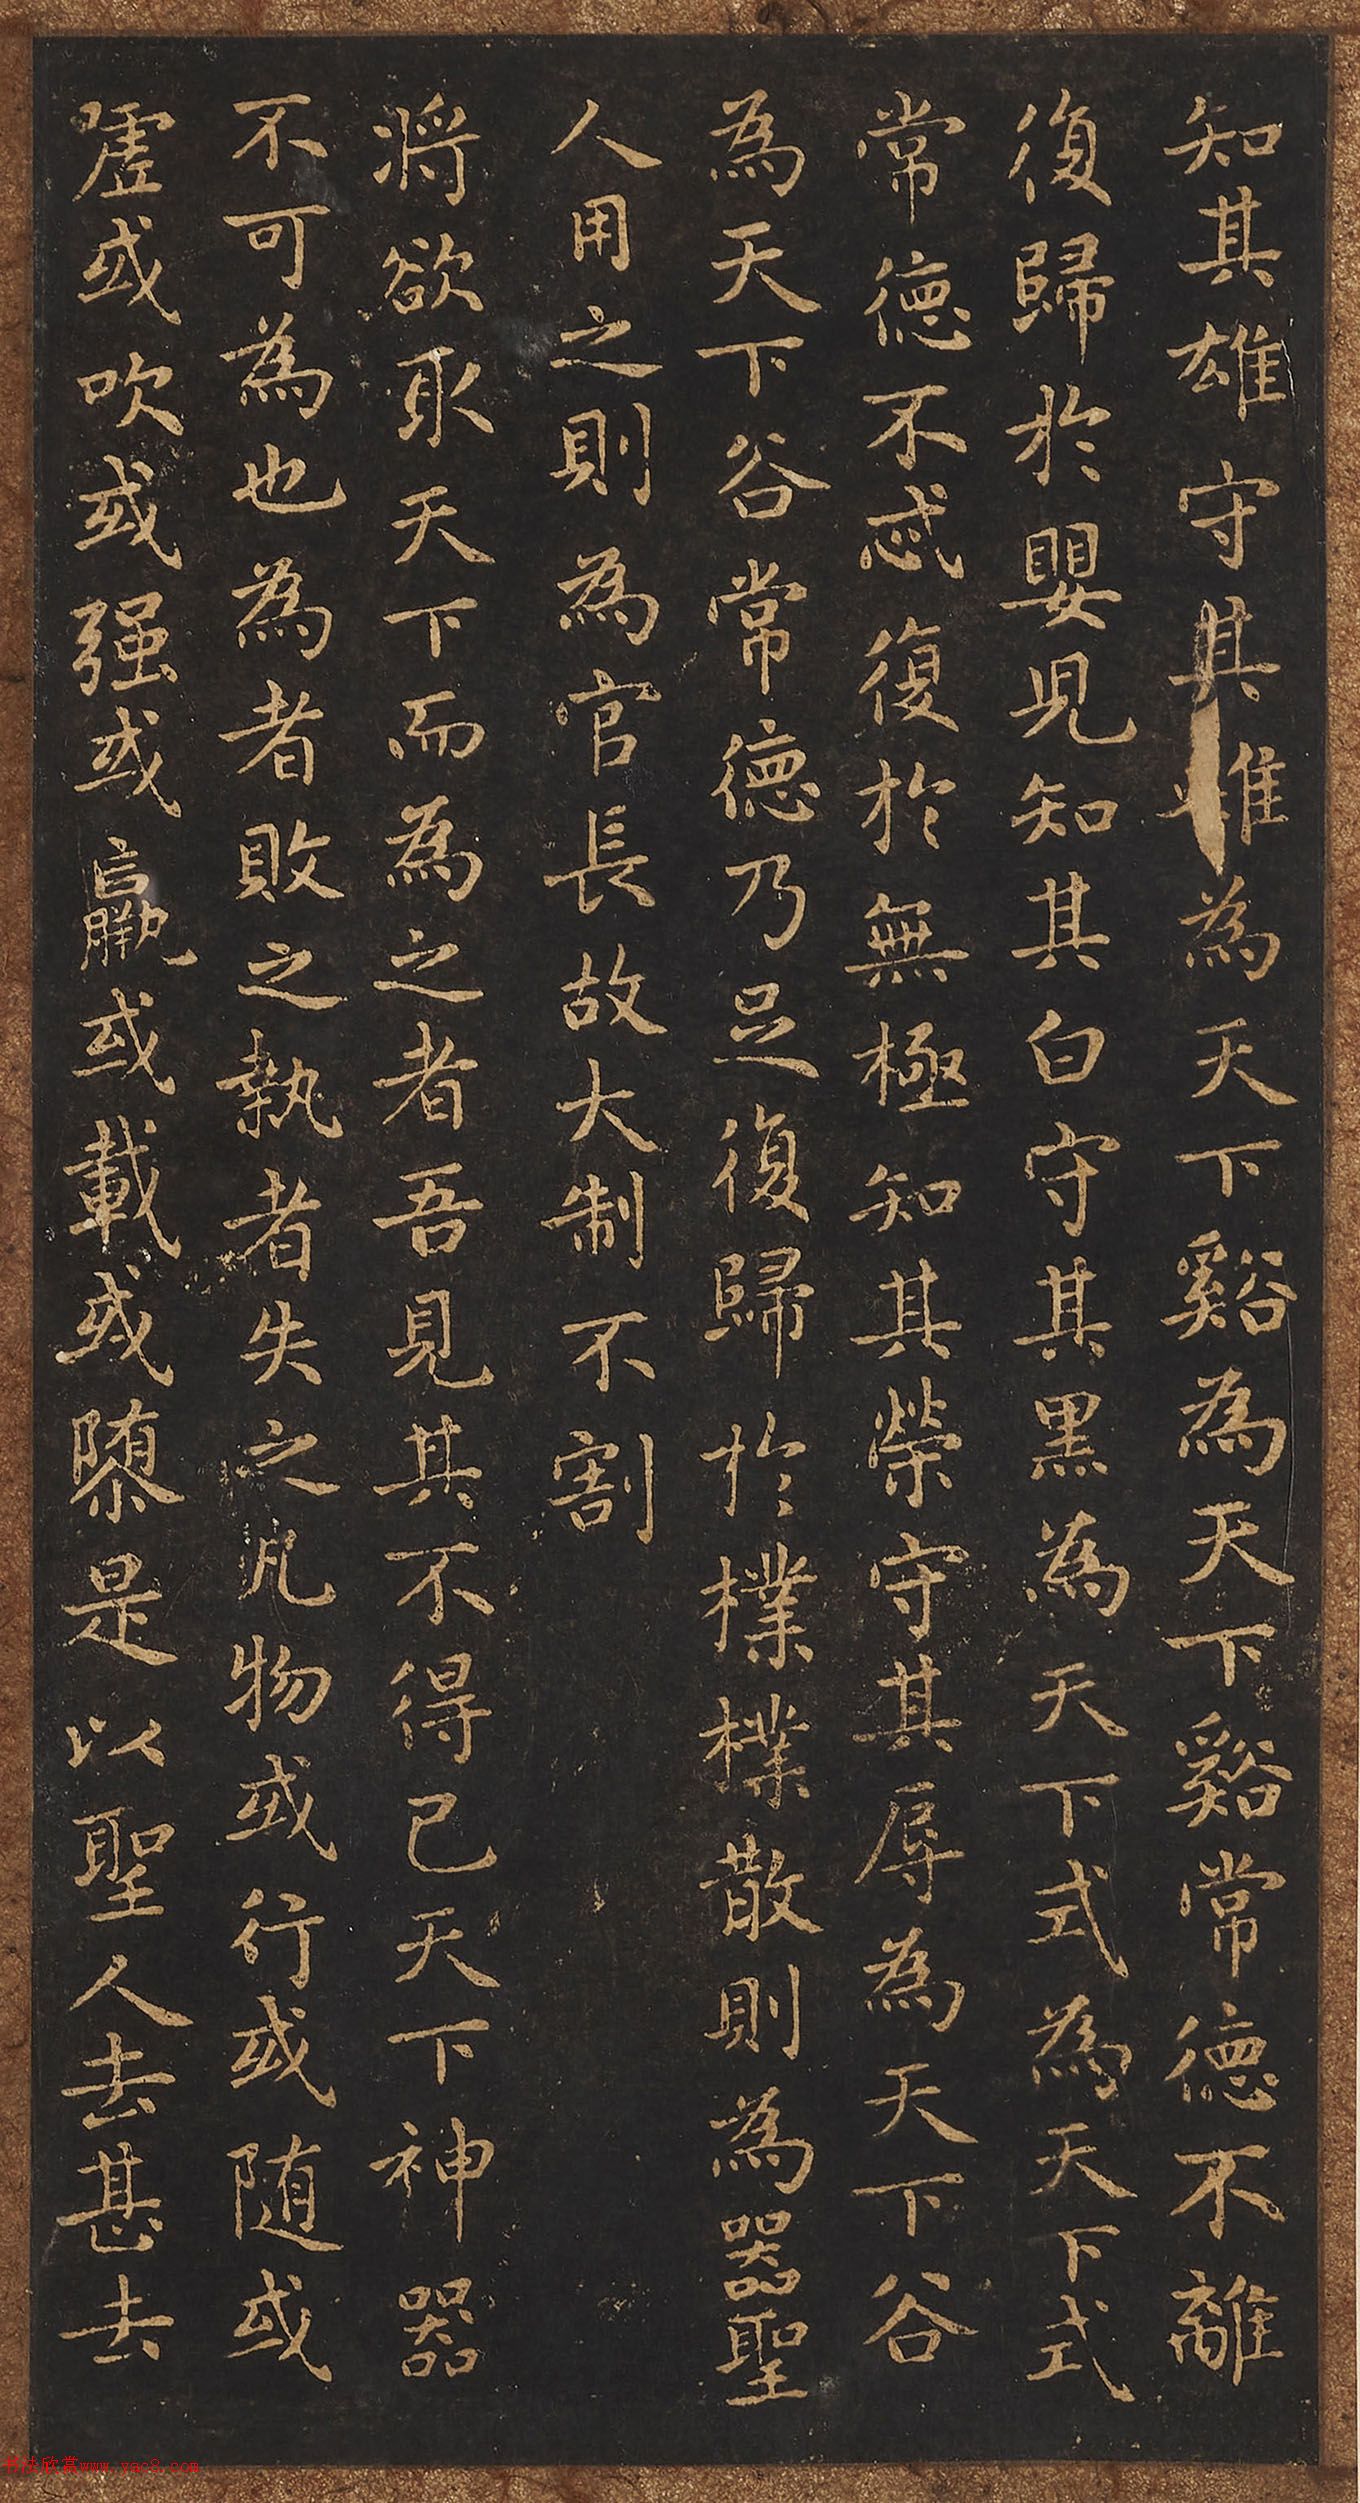 知其雄守其雌為天下谿為天下谿常德不離
復歸於嬰兒知其白守其黑為天下式為天下式
常德不忒復於無極知其榮守其辱為天下谷
為天下谷常德乃足復歸於樸樸散則為器聖
人用之則為官長故大制不割
將欲取天下而為之者吾見其不得已天下神器
不可為也為者敗之執者失之凡物或行或隨或
嘘或吹或强或羸或載或隳是以聖人去甚去
书法欣赏www.yac8.com